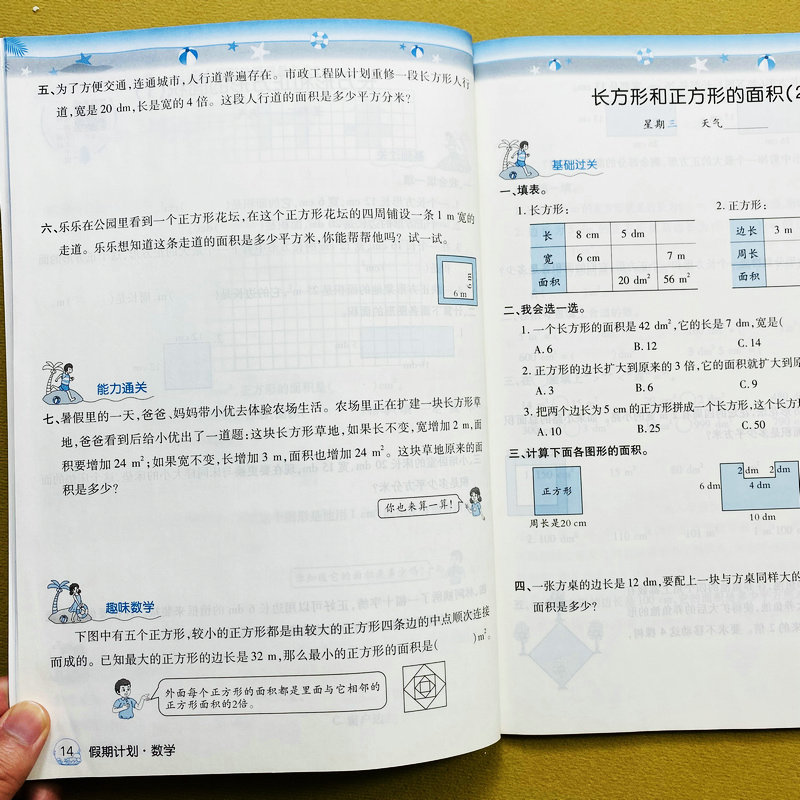 五、为了方便交通,连通城市,人行道普遍存在。市政工程队计划重修一段长方形人行
道,宽是20 dm,长是宽的4倍。这段人行道的面积是多少平方分米?
六、乐乐在公园里看到一个正方形花坛,在这个正方形花坛的四周铺设一条1 m宽的
走道。乐乐想知道这条走道的面积是多少平方米,你能帮帮他吗?试一试。
6 m
6 m
能力通关
七、暑假里的一天,爸爸、妈妈带小优去体验农场生活。农场里正在扩建一块长方形草
地,爸爸看到后给小优出了一道题:这块长方形草地,如果长不变,宽增加2 m,面
积要增加24 m²;如果宽不变,长增加3 m,面积也增加24 m²。这块草地原来的面
积是多少?
你也来算一算!
趣味数学
下图中有五个正方形,较小的正方形都是由较大的正方形四条边的中点顺次连接
而成的。已知最大的正方形的边长是32 m,那么最小的正方形的面积是( )m²。
外面每个正方形的面积都是里面与它相邻的
正方形面积的2倍。
14 假期计划·数学
长方形和正方形的面积(2
星期三 天气
基础过关
一、填表。
1. 长方形: 2. 正方形:
长 8 cm 5 dm 边长 3 m
宽 6 cm 7 m 周长
面积 20 dm² 56 m² 面积
二、我会选一选。
1. 一个长方形的面积是42 dm²,它的长是7 dm,宽是(
A. 6 B. 12 C. 14
2. 正方形的边长扩大到原来的3倍,它的面积就扩大到原
A. 3 B. 6 C. 9
3. 把两个边长为5 cm的正方形拼成一个长方形,这个长方
A. 10 B. 25 C. 50
三、计算下面各图形的面积。
正方形
周长是20 cm
2 dm 2 dm
6 dm 4 dm
10 dm
四、一张方桌的边长是12 dm,要配上一块与方桌同样大的
面积是多少?